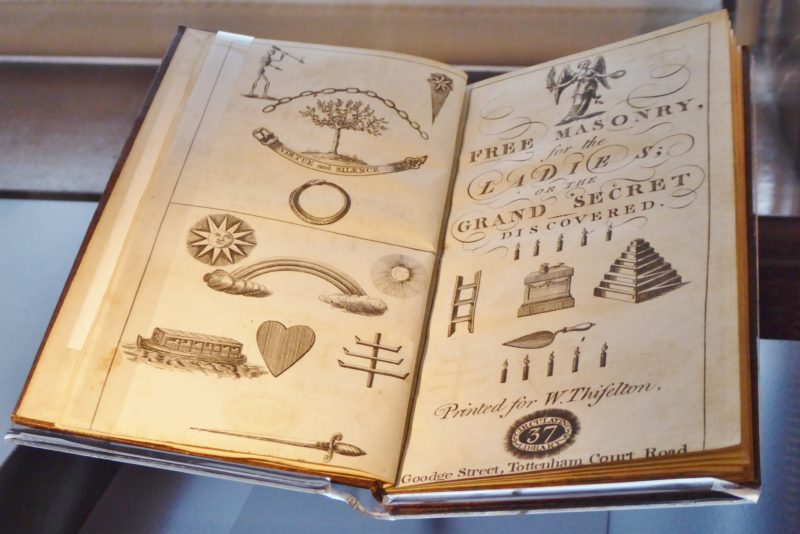 VIRTUE and SILENCE
FREE MASONRY,
for the
LADIES;
OR THE
GRAND SECRET
DISCOVERED.
Printed for W. Thiſelton,
CIRCULATING
37
LIBRARY
Goodge Street, Tottenham Court Road